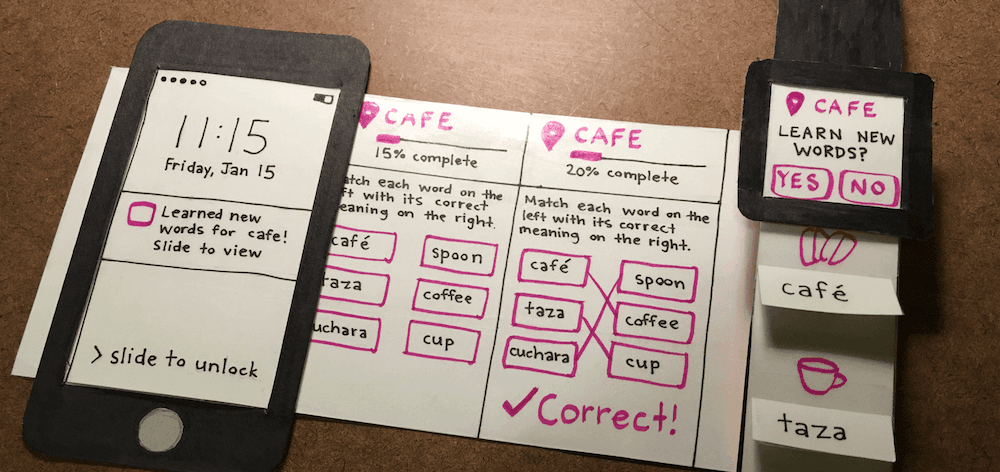 11:15
Friday, Jan 15
Learned new
words for cafe!
Slide to view
> slide to unlock
CAFE
15% complete
atch each word on the
ft with its correct
eaning on the right.
café
spoon
raza
coffee
uchara
cup
CAFE
20% complete
Match each word on the
left with its correct
meaning on the right.
café
spoon
taza
coffee
cuchara
cup
✓Correct!
CAFE
LEARN NEW
WORDS?
YES NO
café
taza